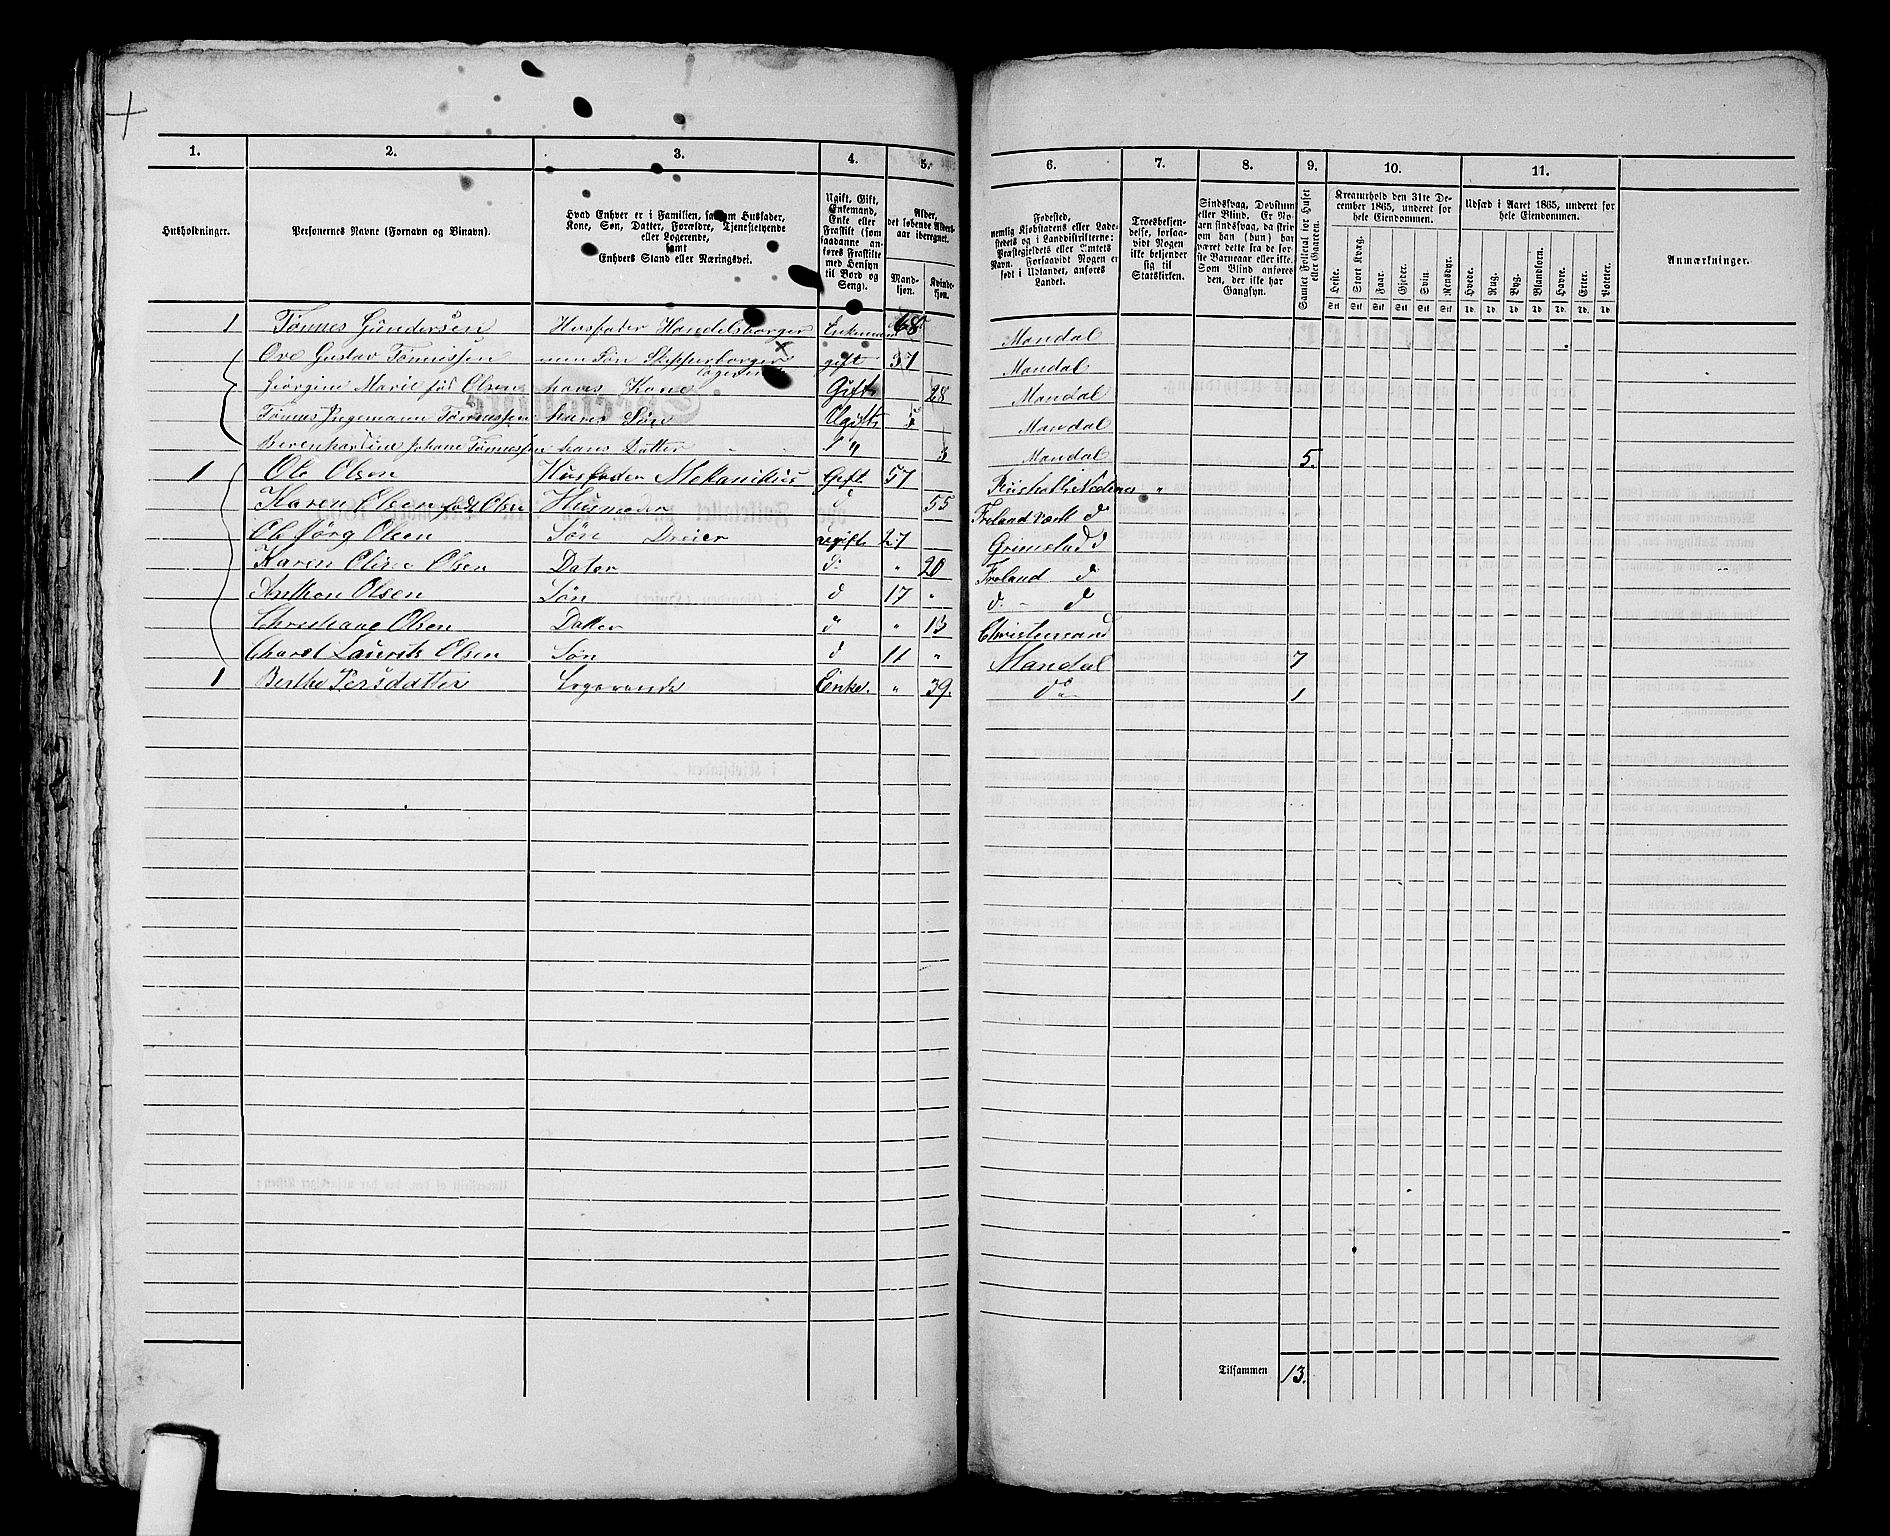 1. 2. 3. 4. 5. 6. 7. 8. 9. 10. 11.
Husholdninger.
Personernes Navne (Fornavn og Binavn).
Hvad Enhver er i Familien, saasom Husfader,
Kone, Søn, Datter, Forældre, Tjenestetyende
eller Logerende,
samt
Enhvers Stand eller Næringsvei.
Ugift, Gift,
Enkemand,
Enke eller
Fraskilt (som
saadanne an-
føres Fraskilte
med Hensyn
til Bord og
Seng).
Alder,
det løbende Alders-
aar iberegnet.
Mand-
kjøn.
Kvinde-
kjøn.
Fødested,
nemlig Kjøbstadens eller Lade-
stedets og i Landdistrikterne:
Præstegjeldets eller Amtets
Navn. Forsaavidt Nogen er
født i Udlandet, anføres
Landet.
Troesbekjen-
delse, forsaa-
vidt Nogen
ikke bekjender
sig til
Statskirken.
Sindssvag, Døvstum
eller Blind. Er No-
gen sindssvag, da skriv
om han (hun) har
været dette fra de før-
ste Barneaar eller ikke.
Som Blind anføres
den, der ikke har
Gangsyn.
Samlet Folketal for Huset
eller Gaarden.
Kreaturhold den 31te De-
cember 1865, underet for
hele Eiendommen.
Heste. Stort Kvæg. Faar. Gjeder. Svin. Rensdyr.
Stk Stk Stk Stk Stk Stk
Udsæd i Aaret 1865, underet for
hele Eiendommen.
Hvede. Rug. Byg. Blandkorn. Havre. Erter. Poteter.
Td. Td. Td. Td. Td. Td. Td.
Anmærkninger.
1 Tønnes Gundersen Husfader Handelsborger Enkemand 68 Mandal
Ove Gustav Tønnissen Søn Skipperborger × gift 37 Mandal
logerende
Giörgine Marie fød Olsen hans Kone Gift 28 Mandal
Tønnes Ingemann Tønnessen hans Søn Ugift 5 Mandal
Berenhardine Johane Tønnessen hans Datter " " 3 Mandal 5.
1 Ole Olsen Husfader Mekanikus Gift 57 "
Karen Olsen født Olsen Husmoder 55 Froland d
Ole Jörg Olsen Søn Dreier ugift 27 Grimstad d
Karen Oline Olsen Dater d " 20 Froland d
Anthon Olsen Søn d 17 " d d
Christiane Olsen Datter d " 13 Christensand
Laurits Olsen Søn d 11 " Mandal 7
1 Berthe Persdatter Logerende Enke. " 39. do 1
Tilsammen 13.